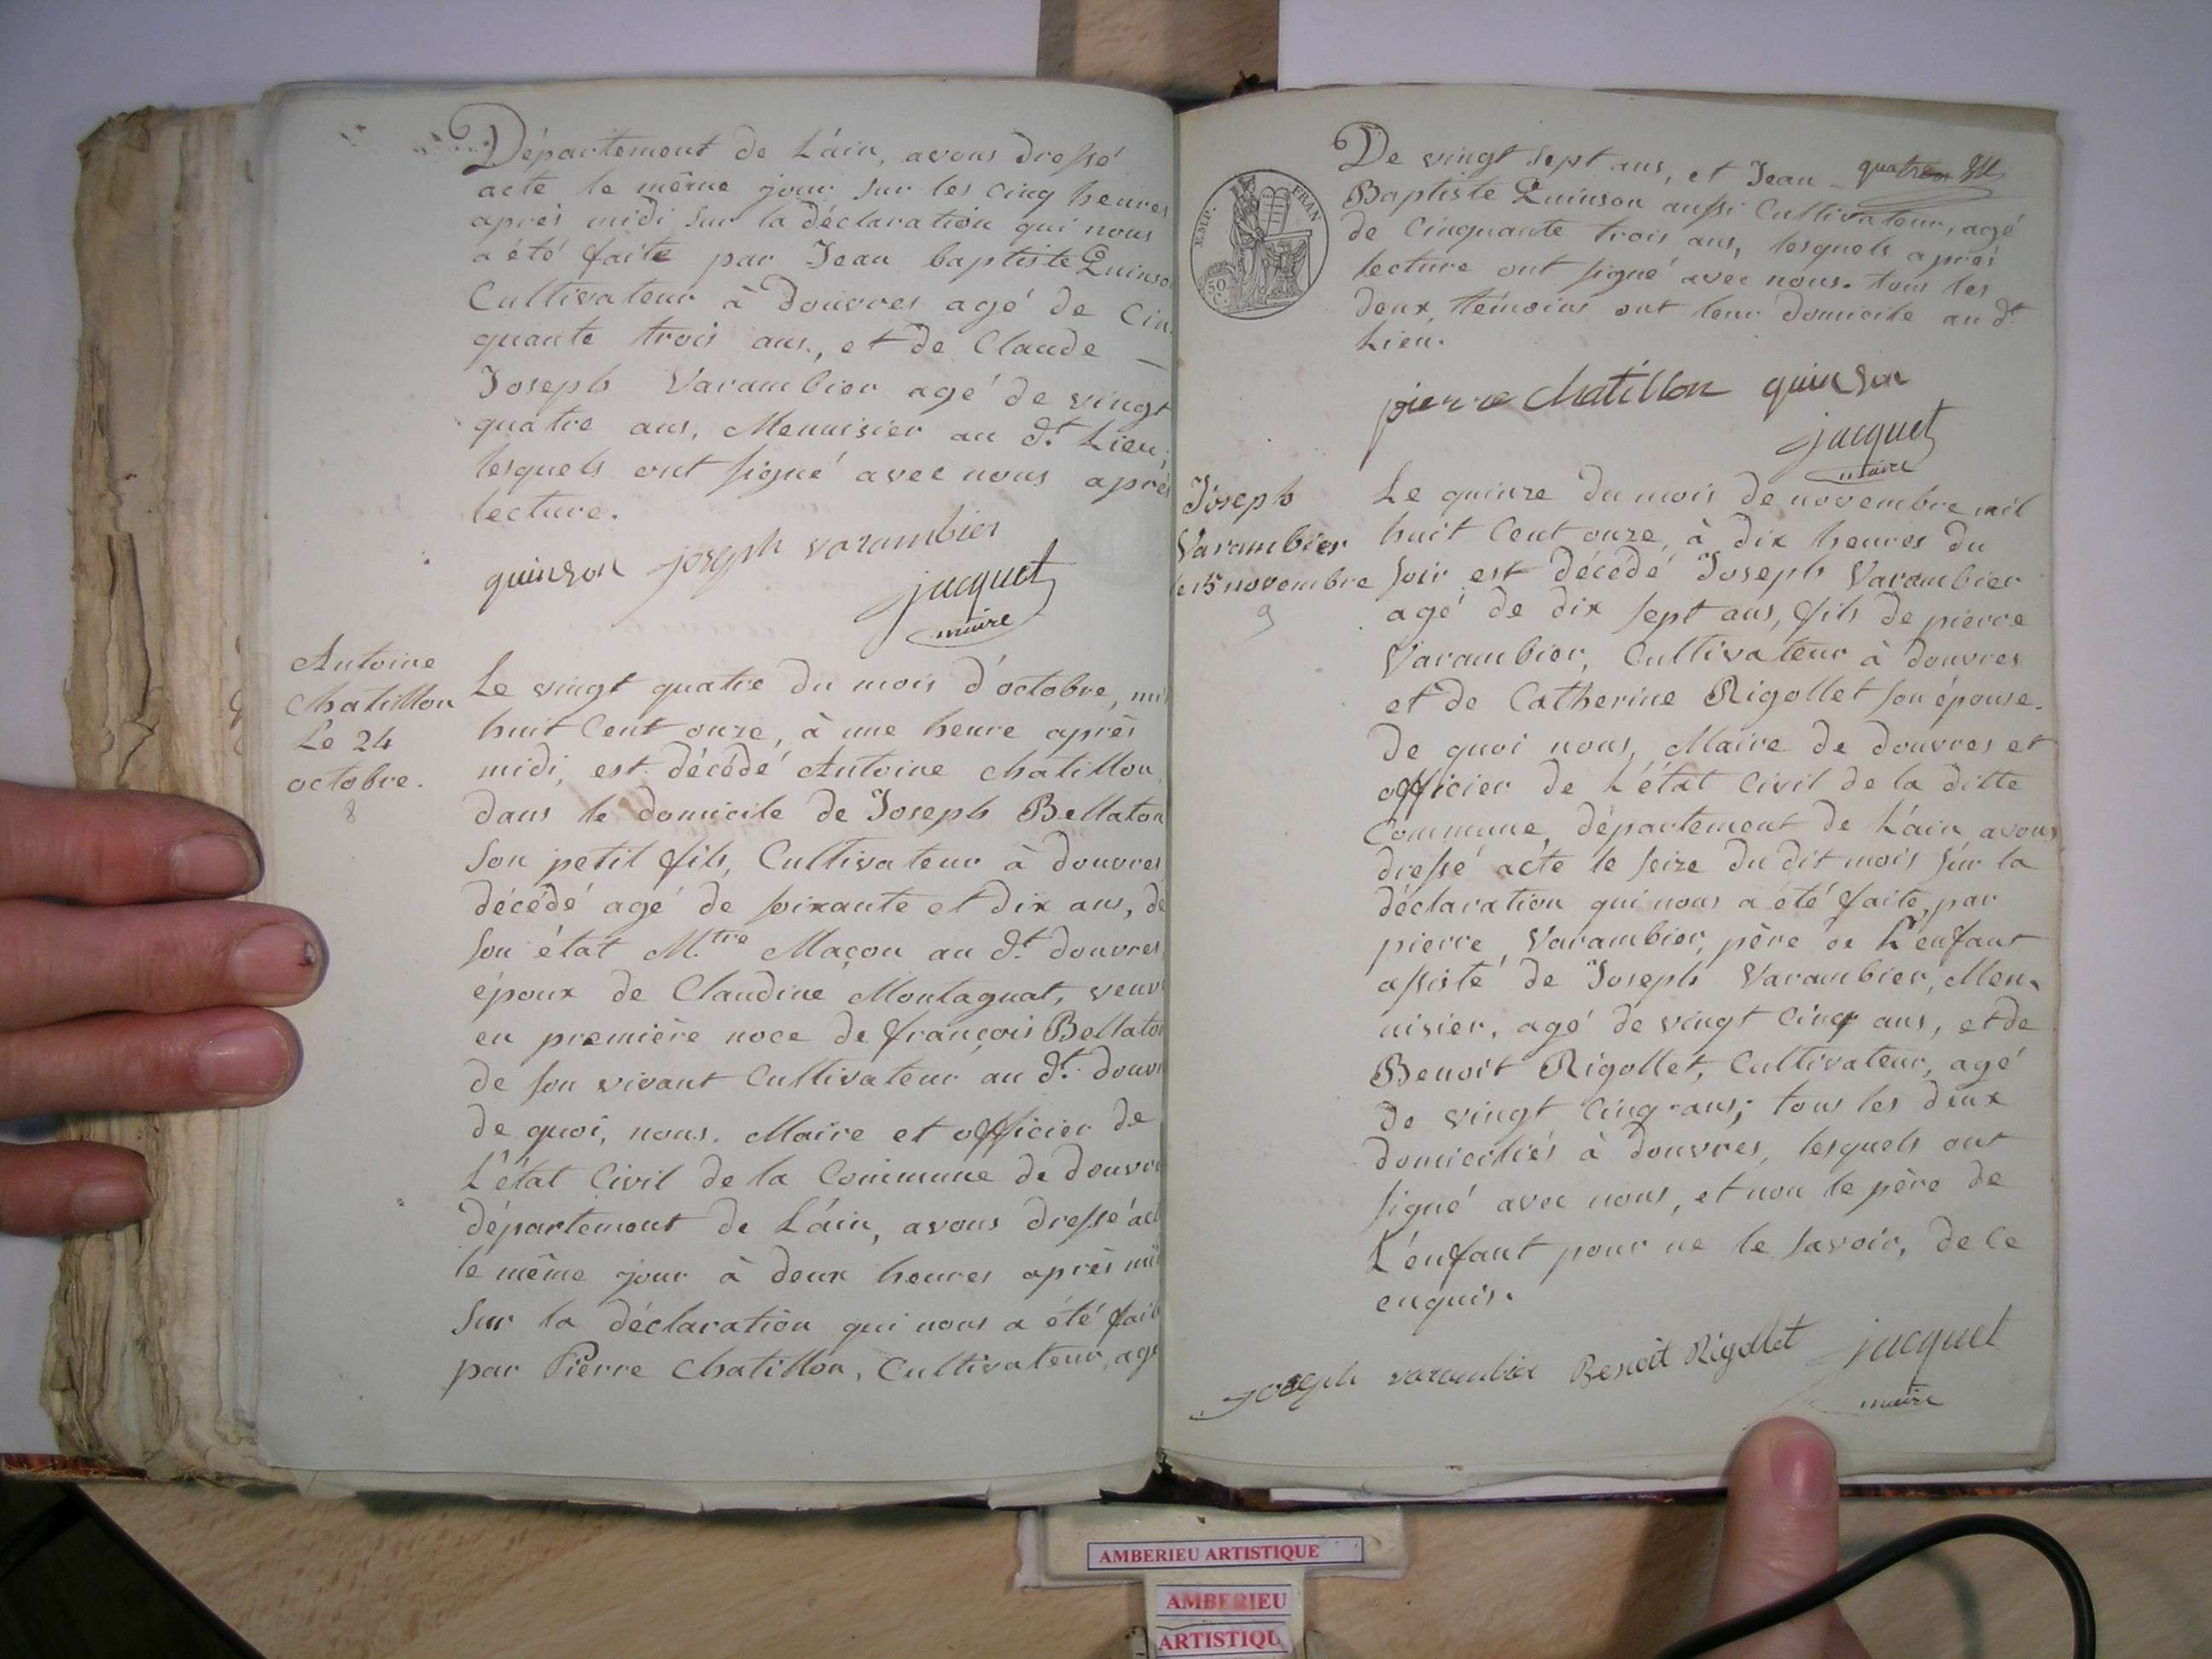 Département de L'ain, avons dressé
acte le même jour sur les cinq heures
après midi sur la déclaration qui nous
a été faite par Jean baptiste Quinso
Cultivateur à Douvres agé de Cin
quante trois ans, et de Claude
Joseph Varambier agé de vingt
quatre ans, Menuisier au dt. Lieu;
lesquels ont signé avec nous après
lecture.
quinson joseph varambier
jacquet
maire
Antoine
Chatillon
Le 24
octobre.
8
Le vingt quatre du mois d'octobre, mil
huit Cent onze, à une heure après
midi, est décédé Antoine chatillon
dans le domicile de Joseph Bellaton
son petit fils, Cultivateur à douvres
décédé agé de soixante et dix ans, de
son état M.tre Maçon au dt. douvres
époux de Claudine Montagnat, veuv
en première noce de françois Bellaton
de son vivant Cultivateur au dt. douv
de quoi, nous, Maire et officier de
L'état Civil de la Commune de Douvr
département de L'ain, avons dressé act
le même jour à deux heures après mi
sur la déclaration qui nous a été fait
par Pierre Chatillon, Cultivateur, agé
EMP. FRAN
50 C.
De vingt sept ans, et Jean
Baptiste Quinson aussi Cultivateur, agé
de Cinquante trois ans, lesquels après
lecture ont signé avec nous. tous les
deux témoins ont leur domicile au dt.
Lieu.
pierre chatillon quinson
jacquet
maire
Joseph
Varambier
le 15 novembre
9
Le quinze du mois de novembre mil
huit Cent onze, à dix heures du
soir est décédé Joseph Varambier
agé de dix sept ans, fils de pierre
Varambier, Cultivateur à douvres
et de Catherine Rigollet son épouse.
De quoi nous, Maire de douvres et
officier de L'état Civil de la ditte
Commune, département de L'ain avons
dressé acte le seize du dit mois sur la
déclaration qui nous a été faite, par
pierre Varambier, père de L'enfant
assisté de Joseph Varambier, Men-
uisier, agé de vingt Cinq ans, et de
Benoit Rigollet, Cultivateur, agé
de vingt Cinq ans; tous les deux
domiciliés à Douvres, lesquels ont
signé avec nous, et non le père de
L'enfant pour ne le savoir, de ce
enquis.
joseph varambier Benoit Rigollet jacquet
maire
AMBERIEU ARTISTIQUE
AMBERIEU
ARTISTIQU